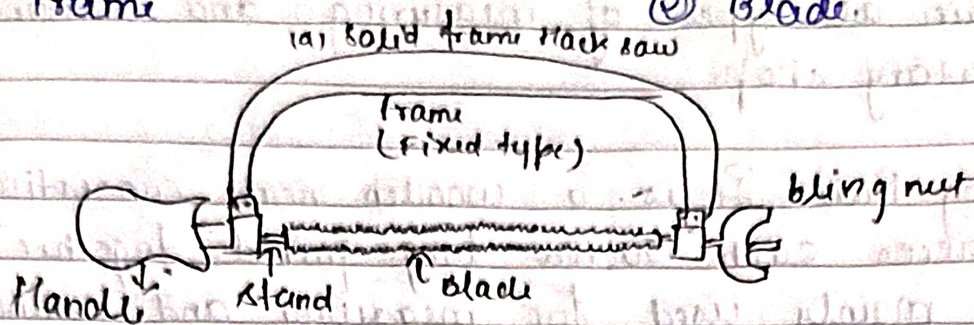 frame (e) Blade.
(a) Solid frame Hack saw
frame
(Fixed type)
bling nut
Handle
Stand.
Blade